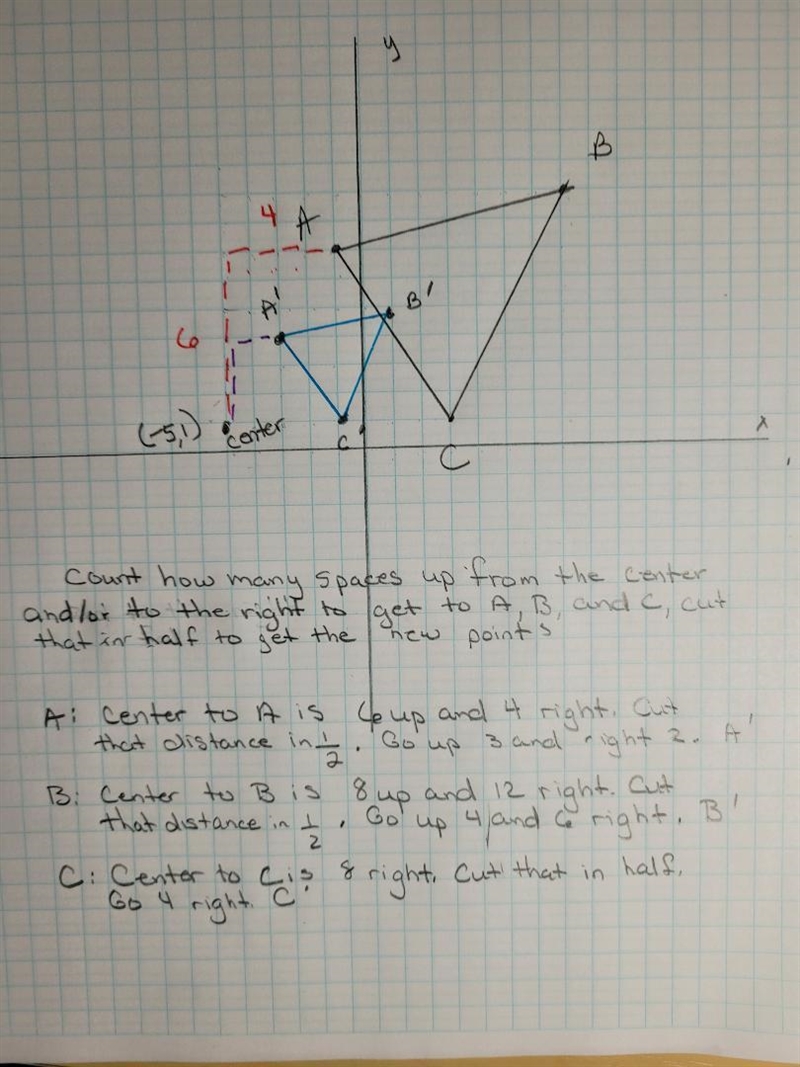 y
B
4
A
A'
B'
6
(-5,1)
center
C'
C
x
Count how many spaces up from the center
and/or to the right to get to A, B, and C, cut
that in half to get the new points
A: Center to A is 6 up and 4 right. Cut
that distance in 1/2. Go up 3 and right 2. A'
B: Center to B is 8 up and 12 right. Cut
that distance in 1/2. Go up 4 and 6 right. B'
C: Center to C is 8 right. Cut that in half.
Go 4 right. C'